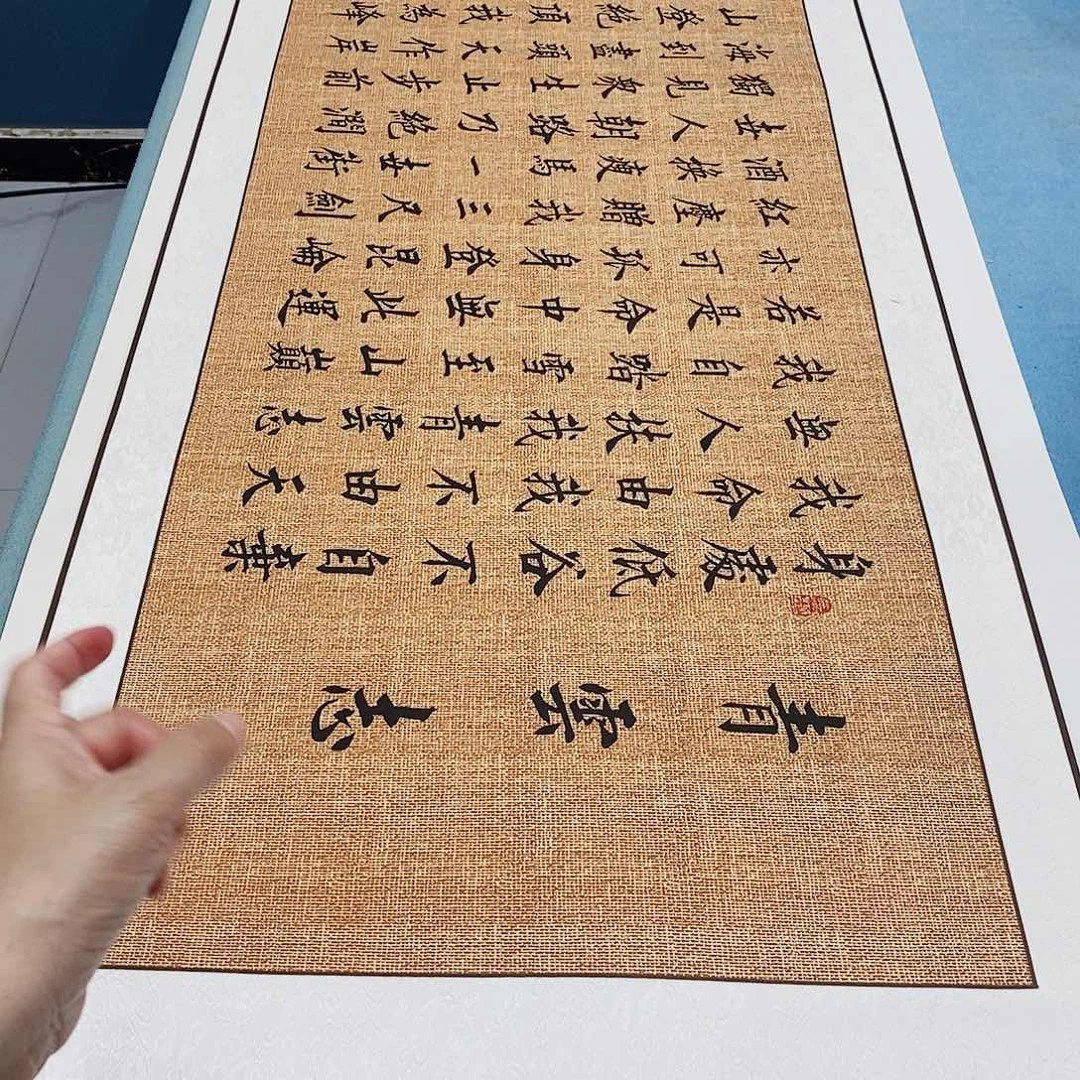 青雲志
身處低谷不自棄
我命由我不由天
無人扶我青雲志
我自踏雪至山巔
若是命中無此運
亦可孤身登昆崘
紅塵贈我三尺劍
酒換瘦馬一世街
世人朝路乃絕澗
獨見衆生止步前
海到盡頭天作岸
山登絕頂我為峰